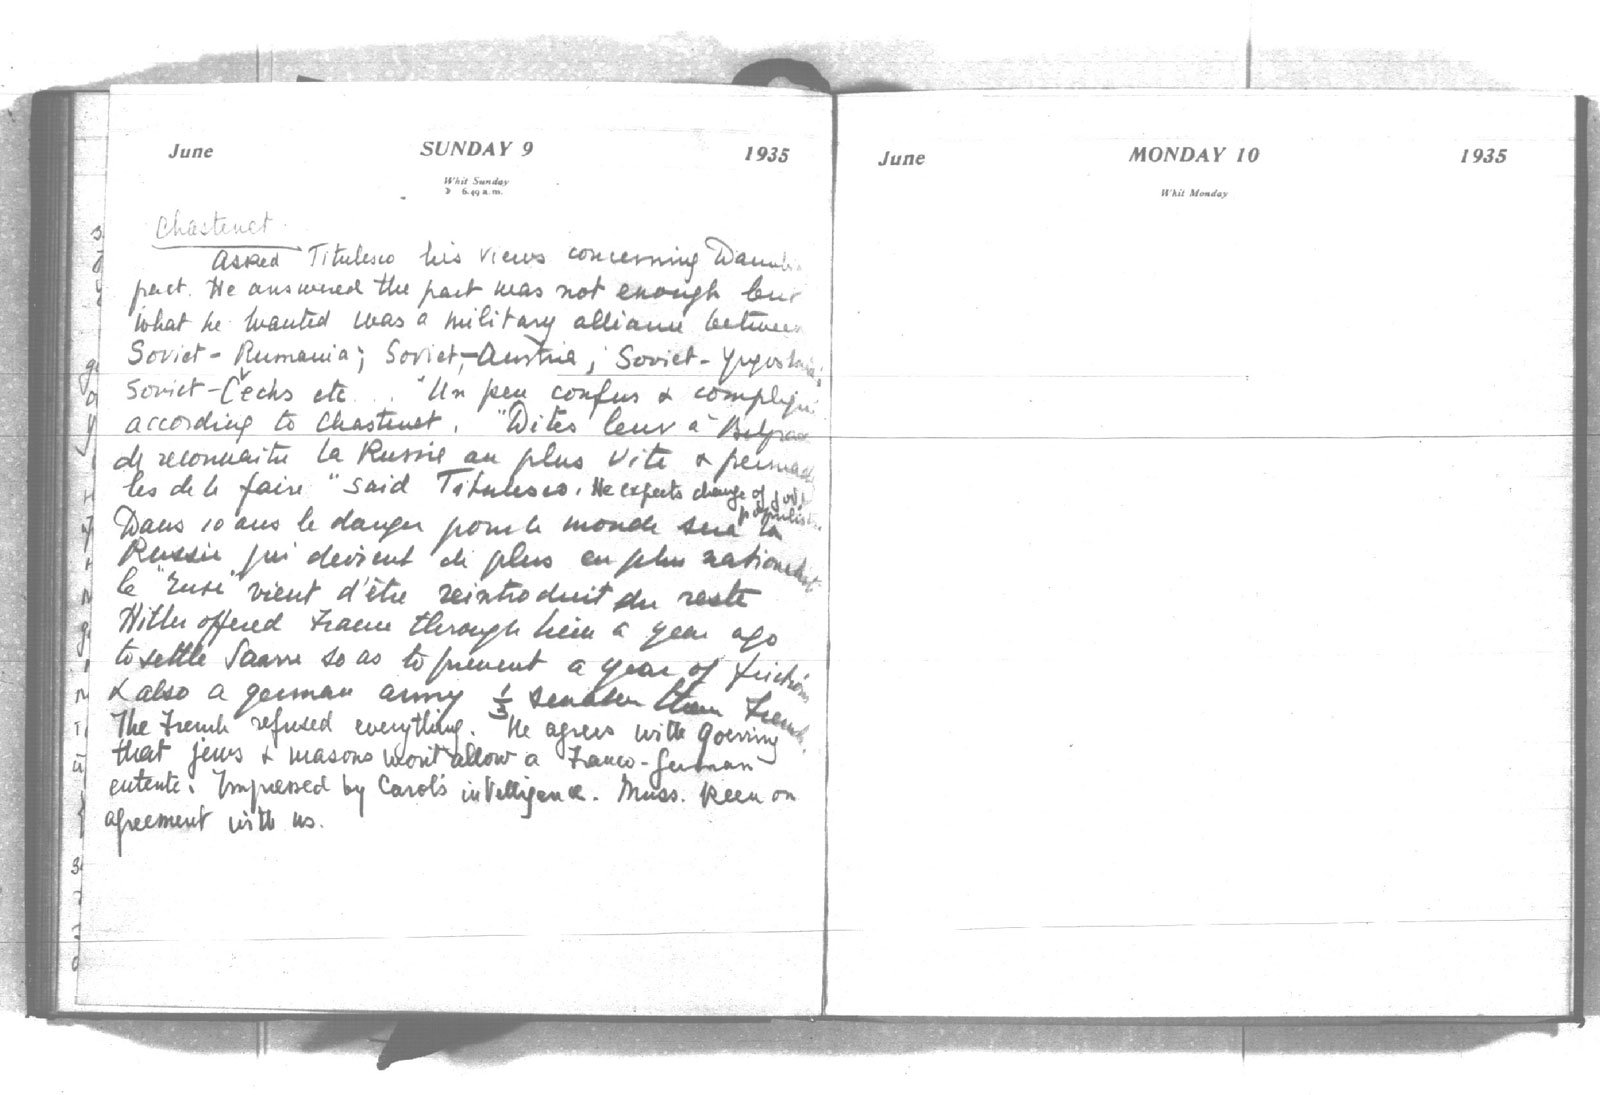 June SUNDAY 9 1935
Whit Sunday
☽ 6.49 a.m.
Chastenet
Asked Titulesco his views concerning
pact. He answered the pact was not enough but
what he wanted was a military alliance between
Soviet-Rumania; Soviet-Austria; Soviet-
Soviet-Čechs etc... "Un peu confus &
according to Chastenet. "Dites leur à
de reconnaitre la Russie au plus vite &
les de le faire" said Titulesco. He expects change of
Dans 10 ans le danger pour le monde sera la
Russie qui devient de plus en plus
le vient d'être reintroduit du reste
Hitler offered France through him a year ago
to settle Saarre so as to prevent a year of friction
& also a german army 1/3 than French.
The French refused everything. He agrees with Goering
that jews & masons won't allow a Franco-German
entente. Impressed by Carol's intelligence. Muss. keen on
agreement with us.
June MONDAY 10 1935
Whit Monday